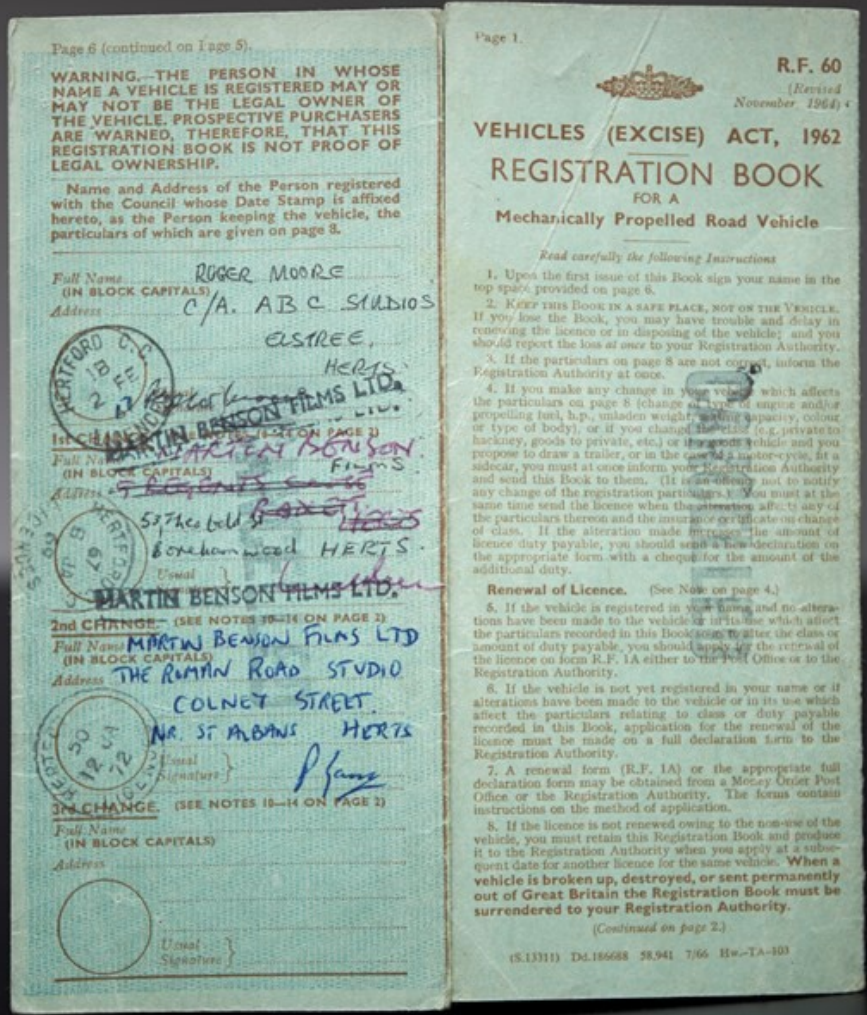 Page 6 (continued on Page 5).
WARNING.—THE PERSON IN WHOSE
NAME A VEHICLE IS REGISTERED MAY OR
MAY NOT BE THE LEGAL OWNER OF
THE VEHICLE. PROSPECTIVE PURCHASERS
ARE WARNED, THEREFORE, THAT THIS
REGISTRATION BOOK IS NOT PROOF OF
LEGAL OWNERSHIP.
Name and Address of the Person registered
with the Council whose Date Stamp is affixed
hereto, as the Person keeping the vehicle, the
particulars of which are given on page 8.
Full Name ROGER MOORE
(IN BLOCK CAPITALS)
Address C/A. ABC STUDIOS
ELSTREE,
HERTS.
HERTFORD C.C.
18 FE
MARTIN BENSON FILMS LTD.
1st CHANGE. (SEE NOTES 10—14 ON PAGE 2)
Full Name MARTIN BENSON
(IN BLOCK CAPITALS) FILMS
Address
53, Theobald St
Borehamwood HERTS.
HERTFORD
67
Usual
MARTIN BENSON FILMS LTD.
2nd CHANGE. (SEE NOTES 10—14 ON PAGE 2)
Full Name MARTIN BENSON FILMS LTD
(IN BLOCK CAPITALS)
Address THE ROMAN ROAD STUDIO
COLNEY STREET.
NR. ST ALBANS HERTS
50
12
72
Usual
Signature
3rd CHANGE. (SEE NOTES 10—14 ON PAGE 2)
Full Name
(IN BLOCK CAPITALS)
Address
Usual
Signature
Page 1.
R.F. 60
(Revised
November 1964)
VEHICLES (EXCISE) ACT, 1962
REGISTRATION BOOK
FOR A
Mechanically Propelled Road Vehicle
Read carefully the following Instructions
1. Upon the first issue of this Book sign your name in the
top space provided on page 6.
2. KEEP THIS BOOK IN A SAFE PLACE, NOT ON THE VEHICLE.
If you lose the Book, you may have trouble and delay in
renewing the licence or in disposing of the vehicle; and you
should report the loss at once to your Registration Authority.
3. If the particulars on page 8 are not correct, inform the
Registration Authority at once.
4. If you make any change in your vehicle which affects
the particulars on page 8 (change of type of engine and/or
propelling fuel, h.p., unladen weight, seating capacity, colour
or type of body), or if you change the class (e.g. private to
hackney, goods to private, etc.) or goods vehicle and you
propose to draw a trailer, or in the case of a motor-cycle, fit a
sidecar, you must at once inform your Registration Authority
and send this Book to them. (It is an offence not to notify
any change of the registration particulars.) You must at the
same time send the licence when the alteration affects any of
the particulars thereon and the insurance certificate on change
of class. If the alteration made increases the amount of
licence duty payable, you should send a new declaration on
the appropriate form with a cheque for the amount of the
additional duty.
Renewal of Licence. (See Note on page 4.)
5. If the vehicle is registered in your name and no altera-
tions have been made to the vehicle or in its use which affect
the particulars recorded in this Book or alter the class or
amount of duty payable, you should apply for the renewal of
the licence on form R.F. 1A either to the Post Office or to the
Registration Authority.
6. If the vehicle is not yet registered in your name or if
alterations have been made to the vehicle or in its use which
affect the particulars relating to class or duty payable
recorded in this Book, application for the renewal of the
licence must be made on a full declaration form to the
Registration Authority.
7. A renewal form (R.F. 1A) or the appropriate full
declaration form may be obtained from a Money Order Post
Office or the Registration Authority. The forms contain
instructions on the method of application.
8. If the licence is not renewed owing to the non-use of the
vehicle, you must retain this Registration Book and produce
it to the Registration Authority when you apply at a subse-
quent date for another licence for the same vehicle. When a
vehicle is broken up, destroyed, or sent permanently
out of Great Britain the Registration Book must be
surrendered to your Registration Authority.
(Continued on page 2.)
(S.13311) Dd.186688 58,941 7/66 Hw.-TA-103
CANCELLED